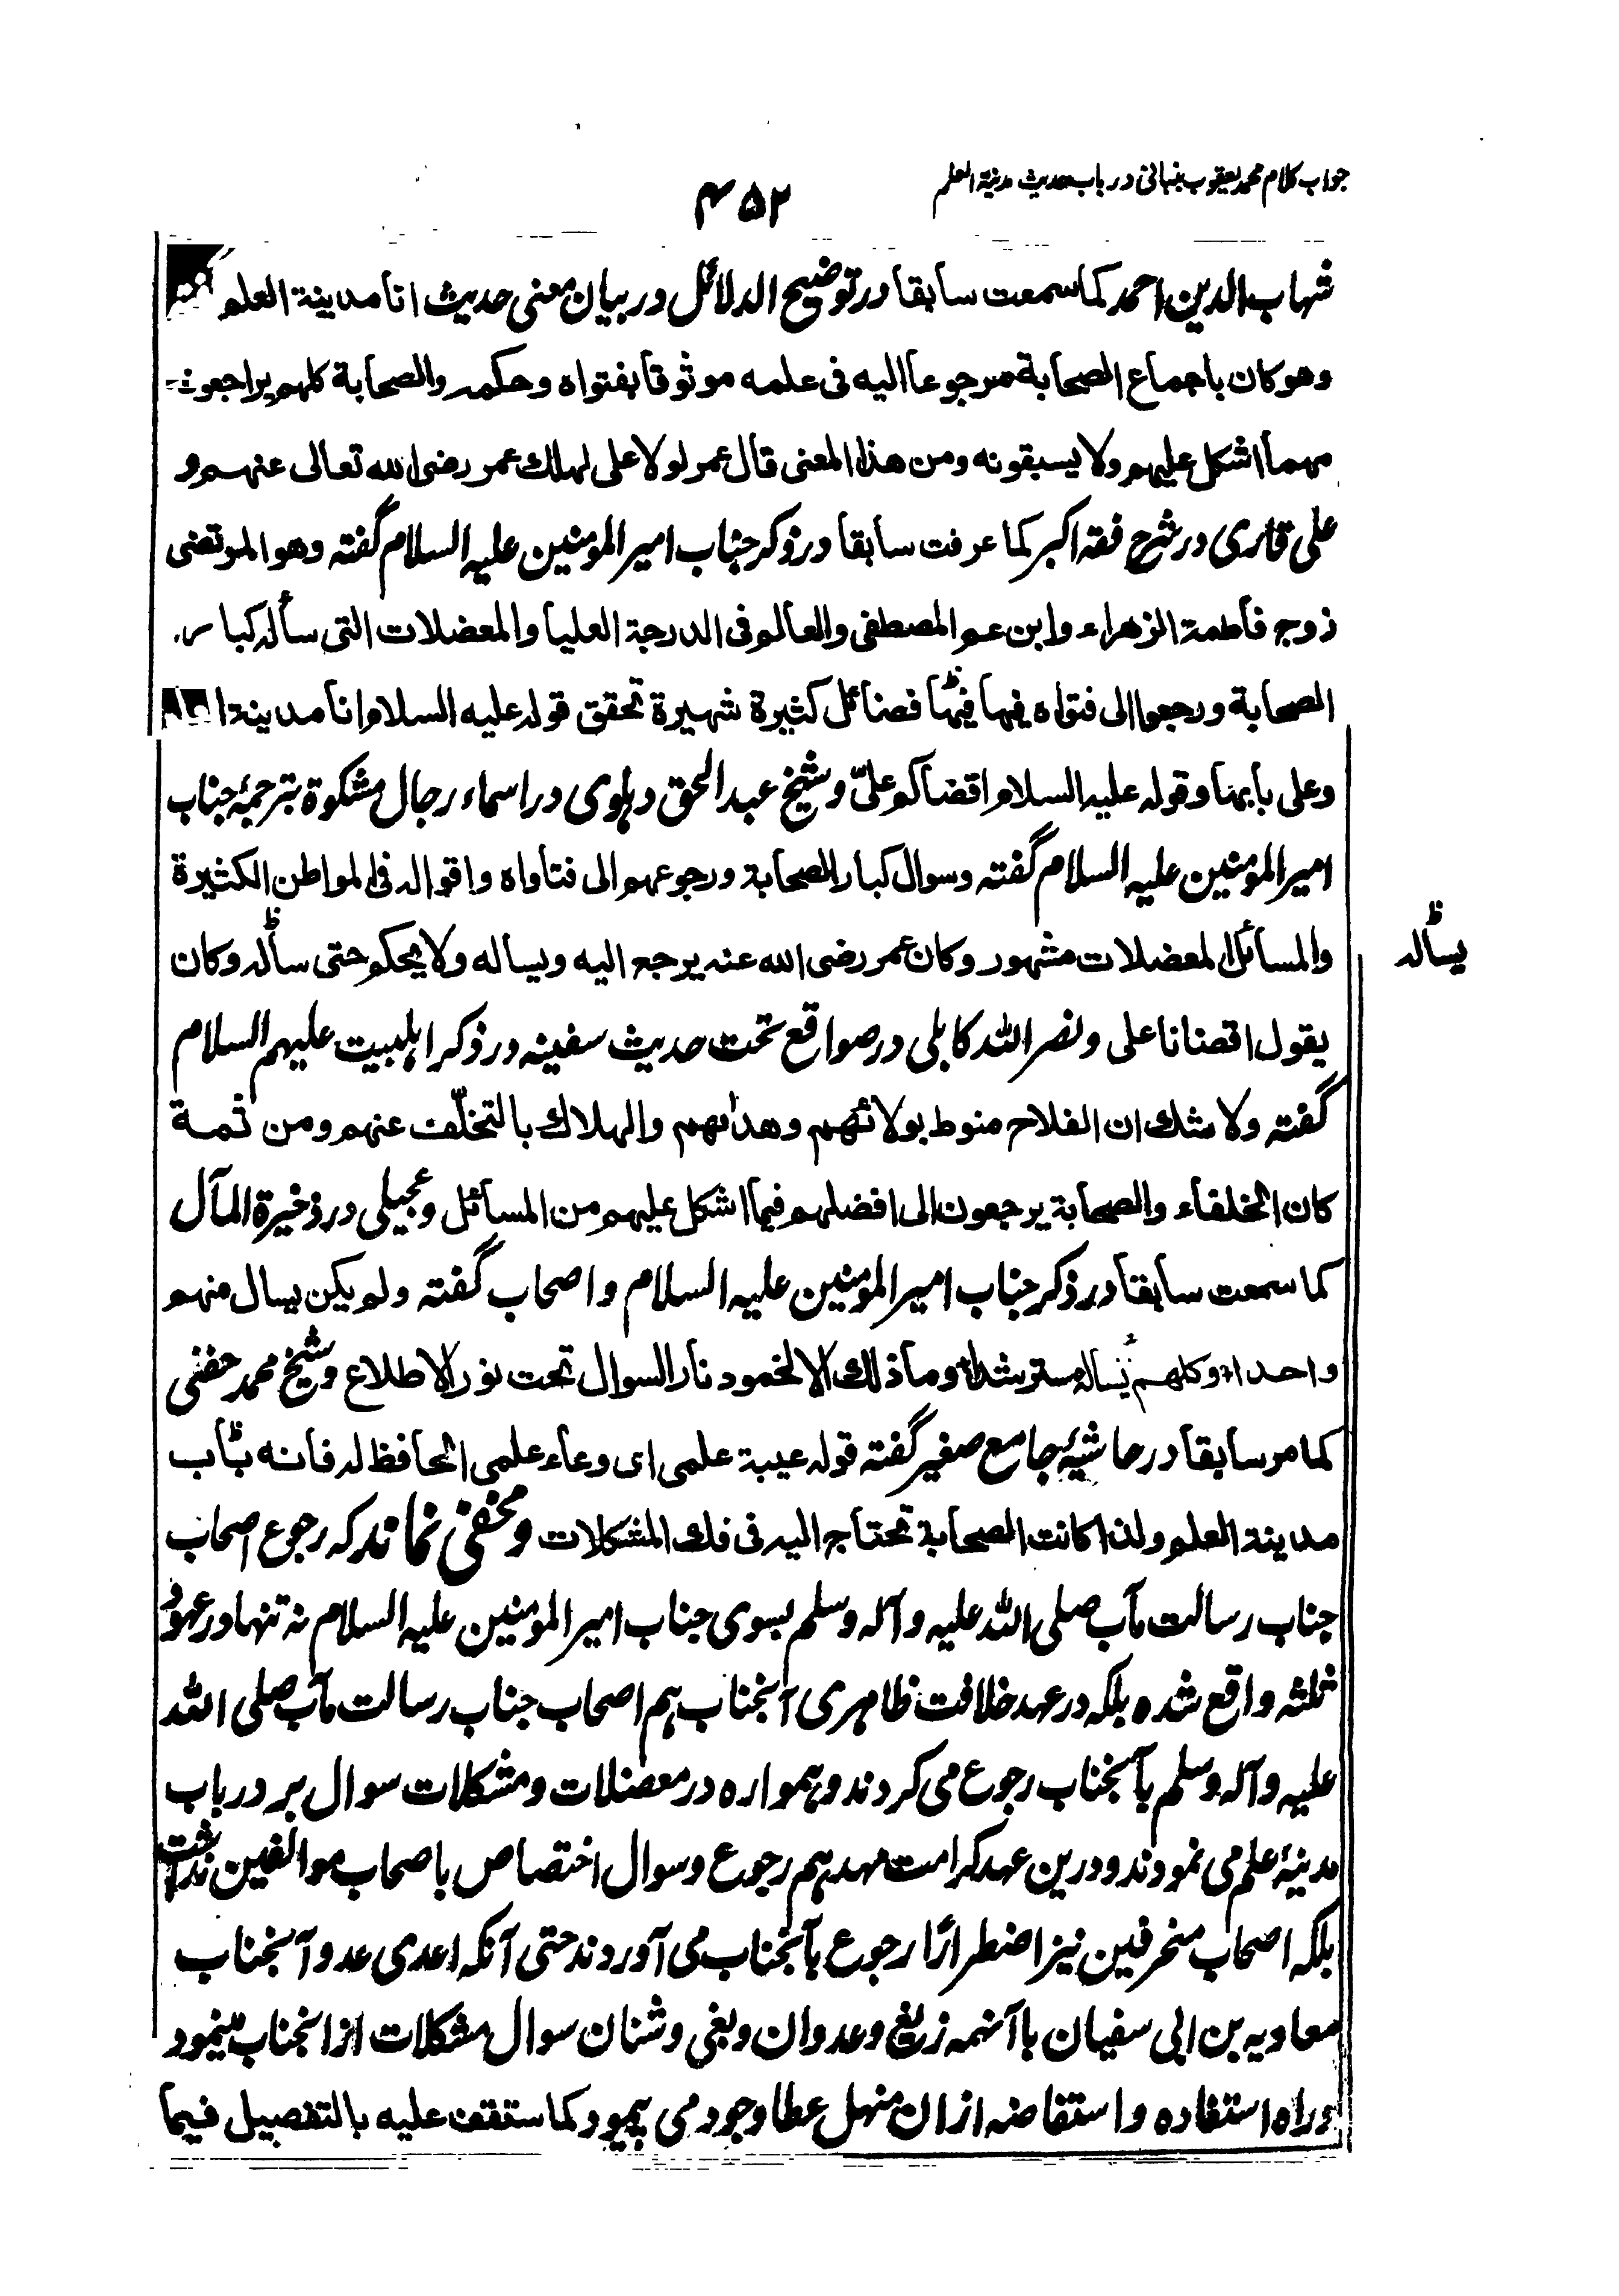 جواب کلام محمد یعقوب بنبانی در باب حدیث مدینة العلم
۴۵۲
شهاب الدین احمد کما سمعت سابقا در توضیح الدلائل در بیان معنی حدیث انا مدینة العلم
وهو کان باجماع الصحابة مرجوعا الیه فی علمه موثوقا بفتواه وحکمه والصحابة کلهم یراجعون
مهما اشکل علیهم ولا یسبقونه ومن هذا المعنی قال عمر لولا علی لهلك عمر رضی الله تعالی عنهم و
علی قاری در شرح فقه اکبر کما عرفت سابقا در ذکر جناب امیر المؤمنین علیه السلام گفته وهو المرتضی
زوج فاطمة الزهراء وابن عم المصطفی والعالم فی الدرجة العلیا والمعضلات التی سأله کبار
الصحابة ورجعوا الی فتواه فیها فضائل کثیرة شهیرة تحقق قوله علیه السلام انا مدینة
وعلی بابها وقوله علیه السلام اقضاکم علیّ و شیخ عبد الحق دہلوی در اسماء رجال مشکوة بترجمۂ جناب
امیر المؤمنین علیه السلام گفته وسوال کبار الصحابة ورجوعهم الی فتاواه واقواله فی المواطن الکثیرة
والمسائل المعضلات مشهور وکان عمر رضی الله عنه یرجع الیه ویساله ولا یحکم حتی سأله وکان
یسأله ظ
یقول اقضانا علی و نصر الله کابلی در صواقع تحت حدیث سفینه در ذکر اہلبیت علیهم السلام
گفته ولا شك ان الفلاح منوط بولائهم وهدایهم والهلاك بالتخلّف عنهم ومن ثمة
کان الخلفاء والصحابة یرجعون الی افضلهم فیما اشکل علیهم من المسائل و عجیلی در ذخیرة المآل
کما سمعت سابقا در ذکر جناب امیر المؤمنین علیه السلام و اصحاب گفته ولم یکن یسال منهم
واحدا وکلهم یسأله مسترشدا وما ذلك الا لخمود نار السوال تحت نور الاطلاع و شیخ محمد حفنی
کما مر سابقا در حاشیۂ جامع صغیر گفته قوله عیبة علمی ای وعاء علمی الحافظ له فانه باب
مدینة العلم ولذا کانت الصحابة تحتاج الیه فی فك المشکلات و مخفی نماند که رجوع اصحاب
جناب رسالت مآب صلی الله علیه و آله و سلم بسوی جناب امیر المؤمنین علیه السلام نه تنها در عهود
ثلثه واقع شده بلکه در عهد خلافت ظاهری آنجناب ہم اصحاب جناب رسالت مآب صلی الله
علیه و آله و سلم بآنجناب رجوع می کردند و ہمواره در معضلات و مشکلات سوال بر در باب
مدینۂ علم می نمودند و درین عهد کرامت مهد ہم رجوع و سوال اختصاص باصحاب موالفین نداشت
بلکه اصحاب منحرفین نیز اضطرارًا رجوع بآنجناب می آوردند حتی آنکه اعدی عدو آنجناب
معاویه بن ابی سفیان با آنہمه زیغ و عدوان و بغی و شنان سوال مشکلات از آنجناب مینمود
و راه استفاده و استفاضه ازان منهل عطا و جود می پیمود کما ستقف علیه بالتفصیل فیما